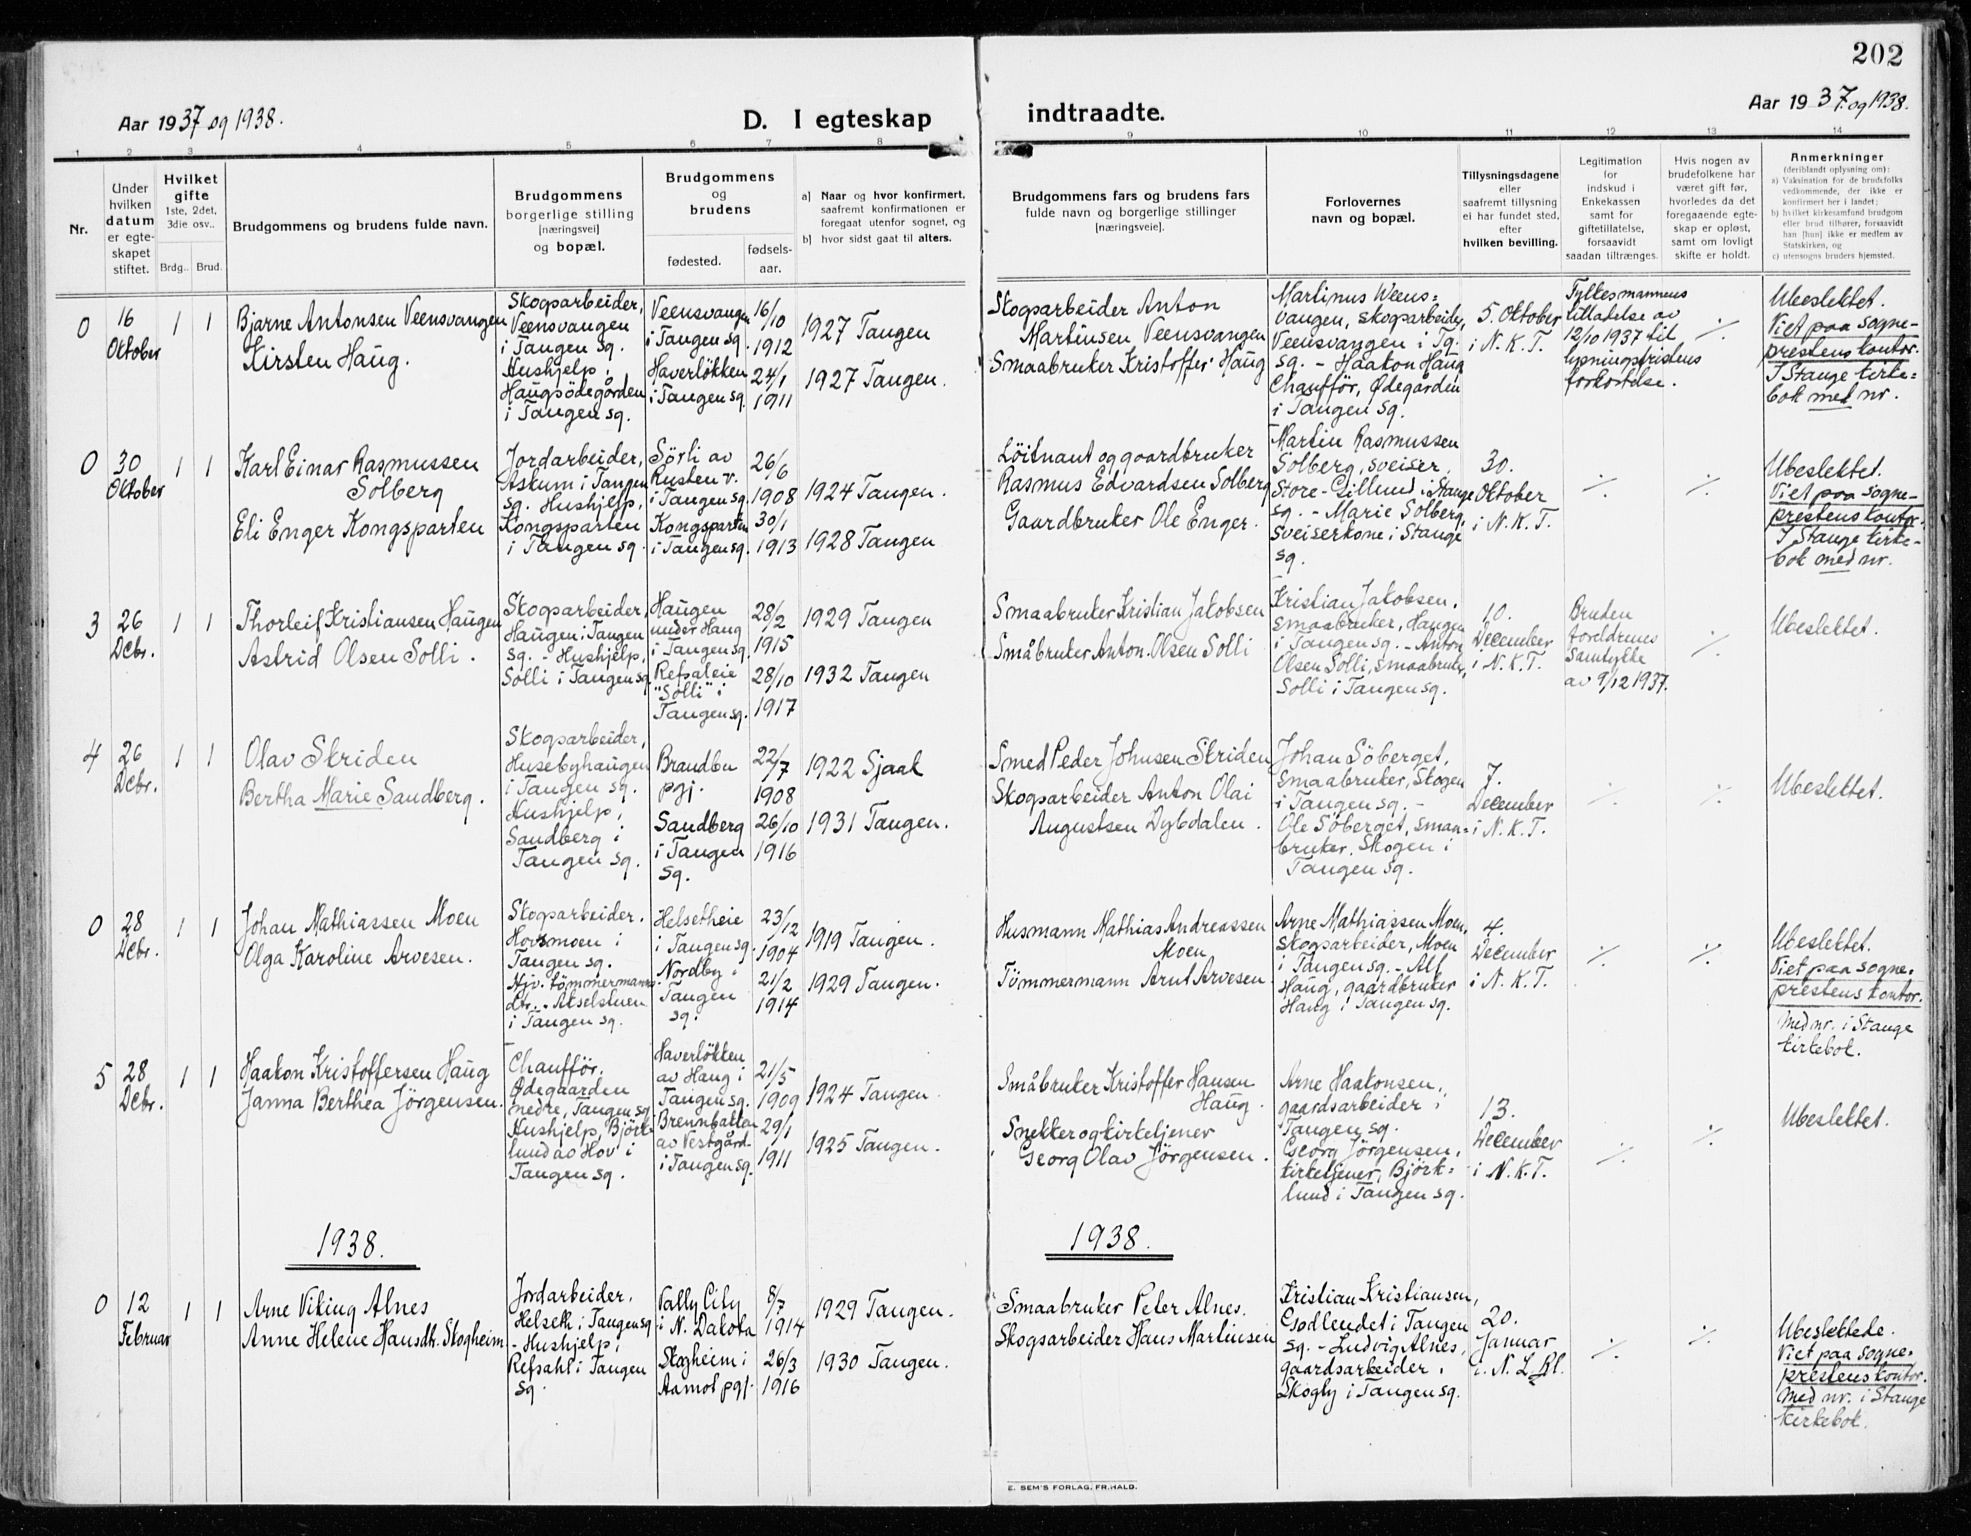 202
Aar 1937 og 1938.
D. I egteskap indtraadte.
Aar 1937 og 1938.
1 2 3 4 5 6 7 8 9 10 11 12 13 14
Nr.
Under
hvilken
datum
er egte-
skapet
stiftet.
Hvilket
gifte
1ste, 2det,
3die osv..
Brdg.. Brud.
Brudgommens og brudens fulde navn.
Brudgommens
borgerlige stilling
[næringsvei]
og bopæl.
Brudgommens
og
brudens
fødested.
fødsels-
aar.
a) Naar og hvor konfirmert,
saafremt konfirmationen er
foregaat utenfor sognet, og
b) hvor sidst gaat til alters.
Brudgommens fars og brudens fars
fulde navn og borgerlige stillinger
[næringsveie].
Forlovernes
navn og bopæl.
Tillysningsdagene
eller
saafremt tillysning
ei har fundet sted,
efter
hvilken bevilling.
Legitimation
for
indskud i
Enkekassen
samt for
giftetillatelse,
forsaavidt
saadan tiltrænges.
Hvis nogen av
brudefolkene har
været gift før,
hvorledes da det
foregaaende egte-
skap er opløst,
samt om lovligt
skifte er holdt.
Anmerkninger
(deriblandt oplysning om):
a) Vaksination for de brudefolks
vedkommende, der ikke er
konfirmert her i landet;
b) hvilket kirkesamfund brudgom
eller brud tilhører, forsaavidt
han [hun] ikke er medlem av
Statskirken, og
c) utensogns bruders hjemsted.
0
16
Oktober
1 1
Bjarne Antonsen Veensvangen
Kirsten Haug.
Skogsarbeider,
Veensvangen
i Tangen sg.
Hushjelp,
Haugsödegården
i Tangen sg.
Veensvangen
i Tangen sg.
Haverlökken
i Tangen sg.
16/10
1912
24/1
1911
1927 Tangen
1927 Tangen.
Skogsarbeider Anton
Martinsen Veensvangen
Smaabruker Kristoffer Haug
Martinus Weens-
vangen, skogsarbeider,
Veensvangen i Tg.
sg. - Haakon Haug
Chaufför, Ødegården
i Tangen sg.
5. Oktober
i N. K. T.
Fylkesmannens
tillatelse av
12/10 1937 til
lysningsfristens
forkortelse.
./.
Ubeslektet.
Viet paa sogne-
prestens kontor.
I Stange kirke-
bok med nr.
0
30
Oktober
1 1
Karl Einar Rasmussen
Solberg
Eli Enger Kongsparten
Jordarbeider,
Askum i Tangen
sg. Hushjelp,
Kongsparten
i Tangen sg.
Sörli av
Rusten v.
i Tangen sg.
Kongsparten
i Tangen sg.
26/6
1908
30/1
1913
1924 Tangen.
1928 Tangen
Löitnant og gaardbruker
Rasmus Edvardsen Solberg
Gaardbruker Ole Enger.
Martin Rasmussen
Solberg, sveiser,
Store-Gillund i Stange
sg. - Marie Solberg,
Sveiserkone i Stange
sg.
30.
Oktober
i N. K. T.
./.
./.
Ubeslektet.
Viet paa sogne-
prestens kontor.
I Stange kirke-
bok med nr.
3
26
Dcbr.
1 1
Thorleif Kristiansen Haugen
Astrid Olsen Solli.
Skogsarbeider,
Haugen i Tangen
sg. - Hushjelp,
Solli i Tangen sg.
Haugen
under Haug
i Tangen sg.
Refsaleie
"Solli" i
Tangen sg.
28/2
1915
28/10
1917
1929 Tangen
1932 Tangen
Smaabruker Kristian Jakobsen
Småbruker Anton Olsen Solli
Kristian Jakobsen,
smaabruker, Haugen
i Tangen sg. - Anton
Olsen Solli, smaabruker,
Solli i Tangen sg.
10.
December
i N. K. T.
Bruden
foreldrenes
samtykke
av 9/12 1937.
./.
Ubeslektet.
4
26
Dcbr.
1 1
Olav Skriden
Bertha Marie Sandberg.
Skogsarbeider,
Husebyhaugen
i Tangen sg.
Hushjelp,
Sandberg i
Tangen sg.
Brandbu
pgj.
Sandberg
i Tangen
sg.
22/7
1908
26/10
1916
1922 Sjaak
1931 Tangen.
Smed Peder Johnsen Skriden
Skogsarbeider Anton Olai
Augustsen Dybdalen.
Johan Söberget,
smaabruker, Skogen
i Tangen sg. -
Ole Söberget, smaa-
bruker, Skogen i
Tangen sg.
7.
December
i N. K. T.
./.
./.
Ubeslektet.
0
28
Dcbr.
1 1
Johan Mathiassen Moen
Olga Karoline Arvesen.
Skogsarbeider.
Hovsmoen i
Tangen sg.
Hjv. tömmermanns
dtr. - Akselstuen
i Tangen sg.
Helsetheie
i Tangen sg.
Nordby i
Tangen
sg.
23/12
1904
21/2
1914
1919 Tangen.
1929 Tangen.
Husmann Mathias Andreassen
Moen
Tömmermann Arnt Arvesen
Arne Mathiassen Moen,
skogsarbeider, Moen
i Tangen sg. - Alf
Haug, gaardbruker
Haug i Tangen sg.
4.
December
i N. K. T.
./.
./.
Ubeslektet.
Viet paa sogne-
prestens kontor.
Med nr. i Stange
kirkebok.
5
28
Dcbr.
1 1
Haakon Kristoffersen Haug
Janna Berthea Jörgensen.
Chaufför,
Ødegaarden
nedre, Tangen sg.
Hushjelp, Björk-
lund av Hov i
Tangen sg.
Haverlökken
av Haug i
Tangen sg.
Brennbakken
av Vestgård
i Tangen sg.
21/5
1909
29/1
1911
1924 Tangen.
1925 Tangen.
Småbruker Kristoffer Hansen
Haug.
Snekker og kirketjener
Georg Olav Jörgensen.
Arne Haakonsen,
gaardsarbeider i
Tangen sg.
Georg Jörgensen,
kirketjener, Björk-
lund i Tangen sg.
13.
December
i N. K. T.
./.
./.
Ubeslektet.
1938.
1938.
0
12
Februar
1 1
Arne Viking Alnes
Anne Helene Hansdtr. Skogheim
Jordarbeider.
Helseth i Tangen sg
- Hushjelp,
Refsahl i Tangen
sg.
Vally City
i N. Dakota
Skogheim i
Aamot pgj.
8/7
1914
26/3
1916
1929 Tangen.
1930 Tangen.
Smaabruker Peter Alnes.
Skogsarbeider Hans Martinsen
Kristian Kristiansen,
Godlendet i Tangen
sg. - Ludvig Alnes,
gaardsarbeider,
Skogly i Tangen sg.
20.
Januar
i N. L. Kl.
./.
./.
Ubeslektede.
Viet paa sogne-
prestens kontor.
Med nr. i Stange
kirkebok.
E. SEM'S FORLAG, FR.HALD.